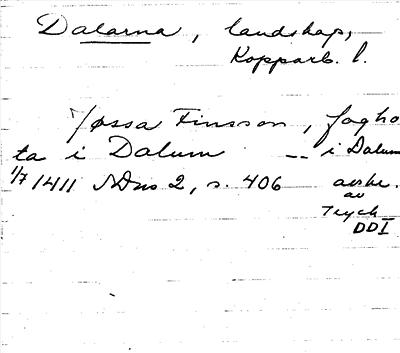 Dalarna, landskap,
Kopparb. l.
Jøssa Finsson, fogho
ta i Dalum -- i Dalum
1/7 1411 SDns 2, s. 406 avskr.
av
Tryck
DD I